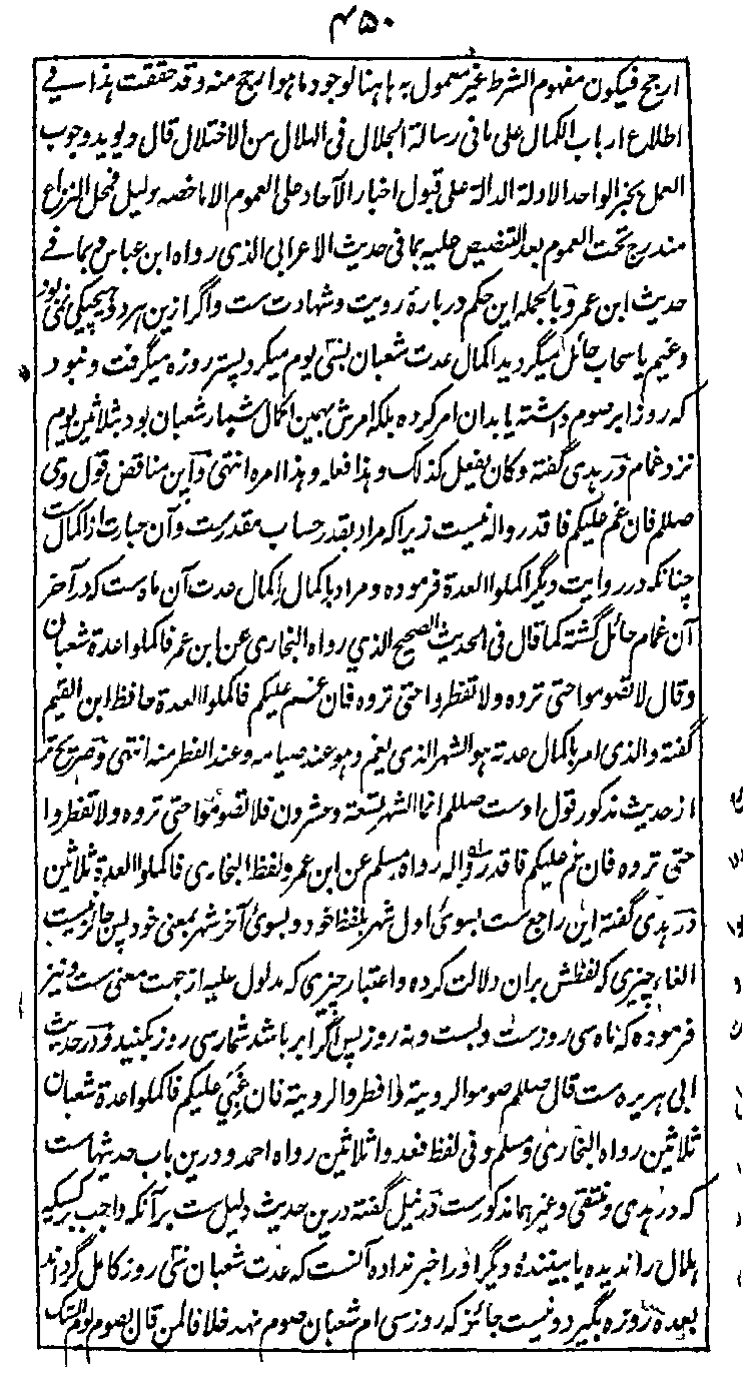 ۴۵۰
ارجح فیکون مفهوم الشرط غیر معمول به ها هنا لوجود ما هو ارجح منه و قد حققت هذا فے
اطلاع ارباب الکمال علی ما فی رسالة الجلال فی الهلال من الاختلال قال و یوید وجوب
العمل بخبر الواحد الادلة الدالة علی قبول اخبار الآحاد علی العموم الا ما خصه دلیل فمحل النزاع
مندرج تحت العموم بعد التنصیص علیه بما فی حدیث الاعرابی الذی رواه ابن عباس و بما فے
حدیث ابن عمر و بالجمله این حکم دربارۀ رویت و شهادت ست و اگر ازین هر دو هیچیکی نمی بود
و غیم یا سحاب حائل میگردید اکمال عدت شعبان بسی یوم میکرد پستر روزه میگرفت و نبود
که روز ابر صوم داشته یا بدان امر کرده بلکه امرش بهمین اکمال شمار شعبان بود بثلاثین یوم
نزد غمام در هدی گفته و کان یفعل کذلک و هذا فعله و هذا امره انتهی و این مناقض قول وی
صللم فان غم علیکم فاقدروا له نیست زیرا که مراد بقدر حساب مقدرست و آن عبارت از اکمال ست
چنانکه در روایت دیگر اکملوا العدة فرموده و مراد باکمال اکمال عدت آن ماه ست که در آخر
آن غمام حائل گشته کما قال فی الحدیث الصحیح الذی رواه البخاری عن ابن عمر فاکملوا عدة شعبان
و قال لا تصوموا حتی تروه و لا تفطروا حتی تروه فان غم علیکم فاکملوا العدة حافظ ابن القیم
گفته و الذی امر باکمال عدته هو الشهر الذی یغم و هو عند صیامه و عند الفطر منه انتهی و صریح تر
از حدیث مذکور قول اوست صللم انما الشهر تسعة و عشرون فلا تصوموا حتی تروه و لا تفطروا
حتی تروه فان غم علیکم فاقدروا له رواه مسلم عن ابن عمر و لفظ البخاری فاکملوا العدة ثلاثین
در هدی گفته این راجع ست بسوئ اول شهر بلفظ خود و بسوئ آخر شهر بمعنی خود پس جائز نیست
الغاء چیزی که لفظش بران دلالت کرده و اعتبار چیزی که مدلول علیه از جهت معنی ست و نیز
فرموده که ماه سی روز ست و بست و نه روز پس اگر ابر باشد شمار سی روز بکنید و در حدیث
ابی هریره ست قال صللم صوموا لرویته و افطروا لرویته فان غبی علیکم فاکملوا عدة شعبان
ثلاثین رواه البخاری و مسلم و فی لفظ فعدوا ثلاثین رواه احمد و درین باب حدیثهاست
که در هدی و منتقی و غیرهما مذکورست در نیل گفته درین حدیث دلیل ست بر آنکه واجب بر کسیکه
هلال را ندیده یا بینندۀ دیگر او را خبر نداده آنست که عدت شعبان سی روز کامل گرداند
بعده روزه بگیرد و نیست جائز که روز سی ام شعبان صوم نهد خلافا لمن قال بصوم یوم الشک